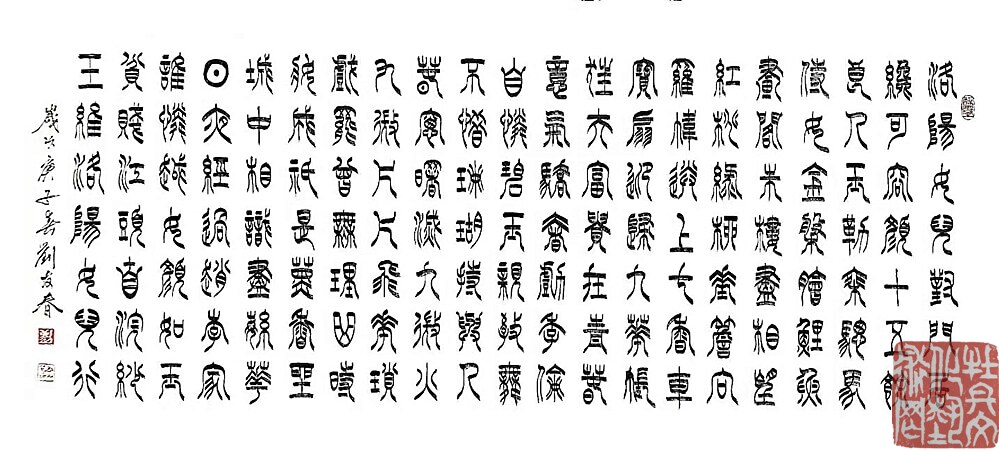 洛陽女兒對門居
纔可容顏十五餘
良人玉勒乘驄馬
侍女金盤膾鯉魚
畫閣朱樓盡相望
紅桃綠柳垂簷向
羅幃送上七香車
寶扇迎歸九華帳
狂夫富貴在青春
意氣驕奢劇季倫
自憐碧玉親教舞
不惜珊瑚持與人
春窗曙滅九微火
九微片片飛花瑣
戲罷曾無理曲時
妝成祇是薰香坐
城中相識盡繁華
日夜經過趙李家
誰憐越女顏如玉
貧賤江頭自浣紗
王維洛陽女兒行
歲次庚子春劉友春